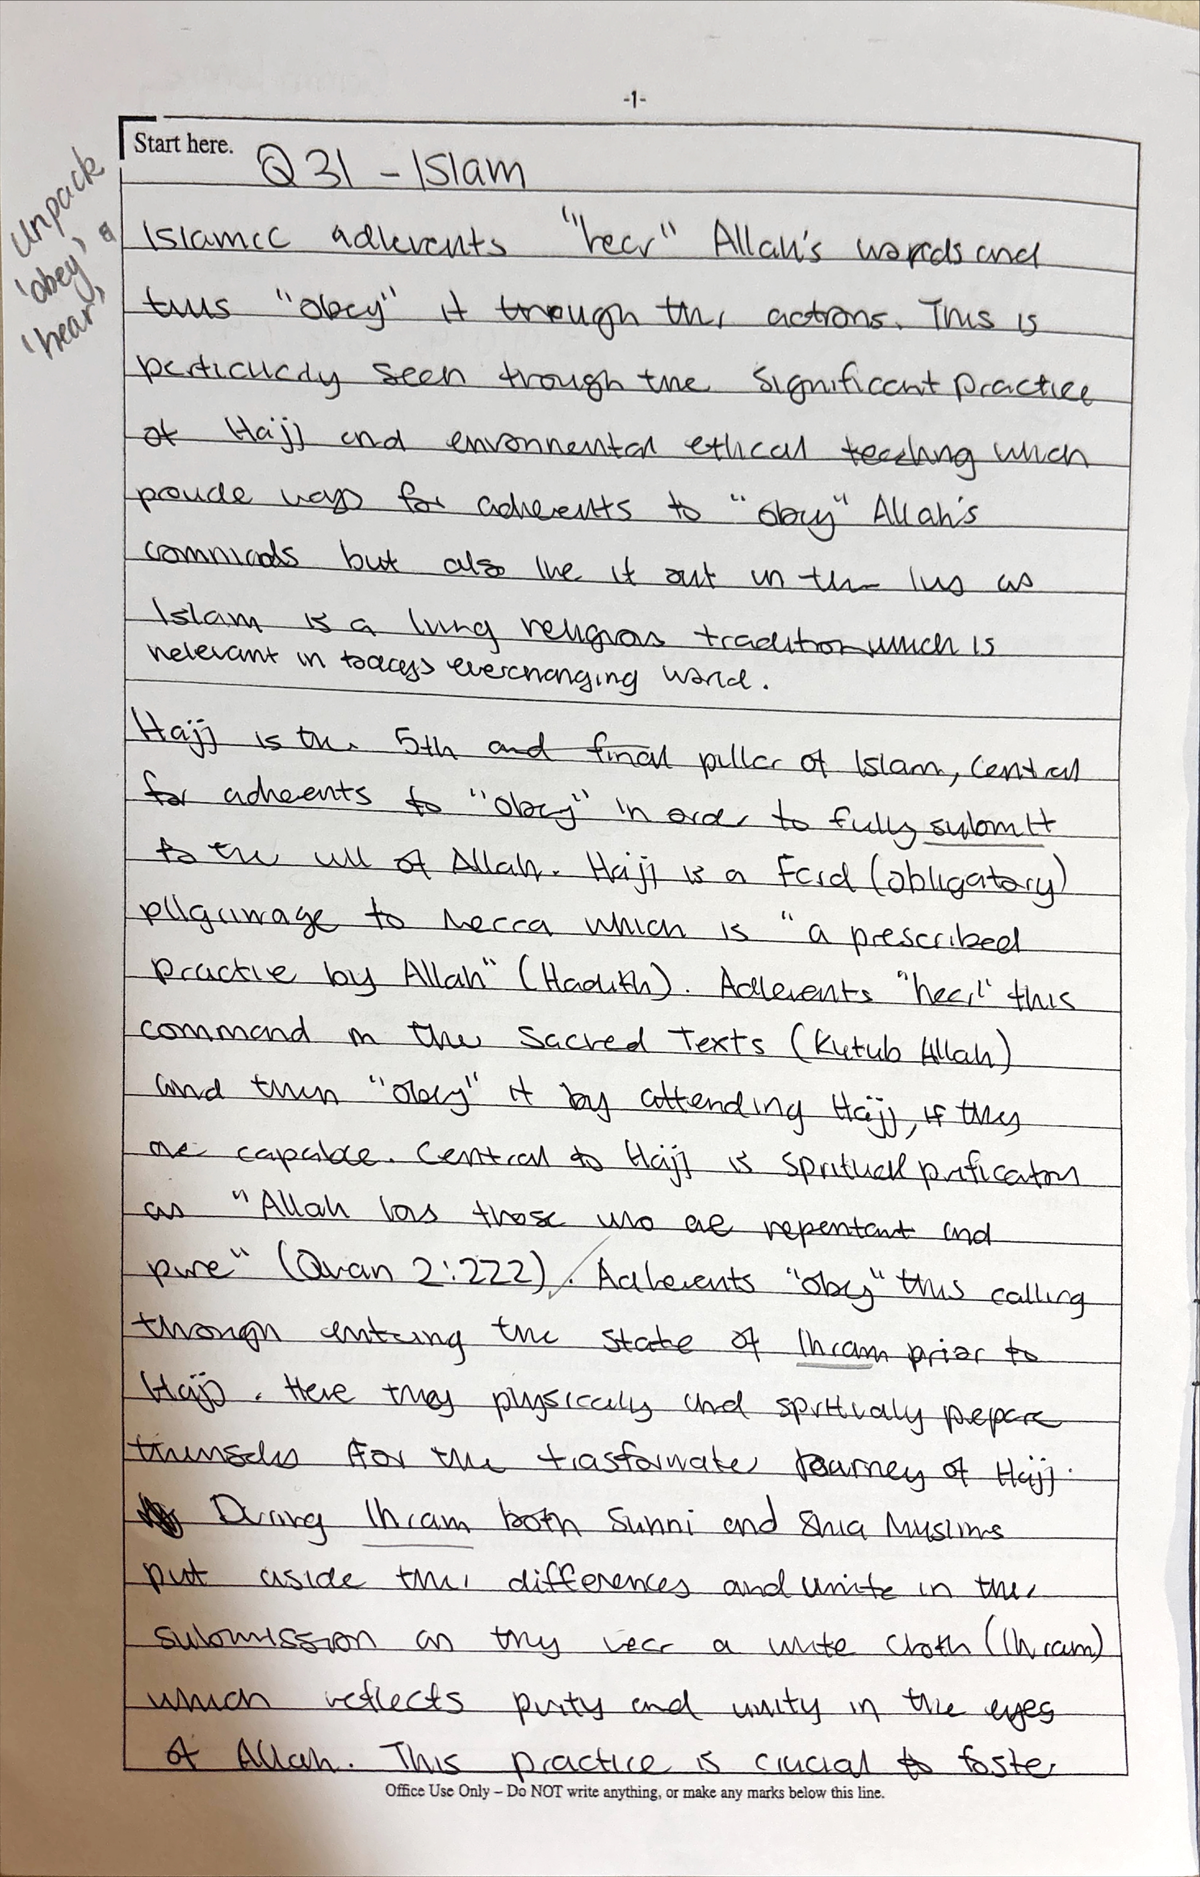 -1-
Start here.
Q31 - Islam
Unpack
'obey' &
'hear'
Islamic adherents "hear" Allah's words and
thus "obey" it through their actions. This is
particularly seen through the significant practice
of Hajj and environmental ethical teaching which
provide ways for adherents to "obey" Allah's
commands but also live it out in their lives as
Islam is a living religious tradition which is
relevant in todays everchanging world.
Hajj is the 5th and final pillar of Islam, central
for adherents to "obey" in order to fully submit
to the will of Allah. Hajj is a Fard (obligatory)
pilgrimage to Mecca which is "a prescribed
practice by Allah" (Hadith). Adherents "hear" this
command in the Sacred Texts (Kutub Allah)
and then "obey" it by attending Hajj, if they
are capable. Central to Hajj is spiritual purification
as "Allah loves those who are repentant and
pure" (Quran 2:222). Adherents "obey" this calling
through entering the state of Ihram prior to
Hajj. Here they physically and spiritually prepare
themselves for the transformative journey of Hajj.
During Ihram both Sunni and Shia Muslims
put aside their differences and unite in their
submission as they wear a white cloth (Ihram)
which reflects purity and unity in the eyes
of Allah. This practice is crucial to foster
Office Use Only – Do NOT write anything, or make any marks below this line.